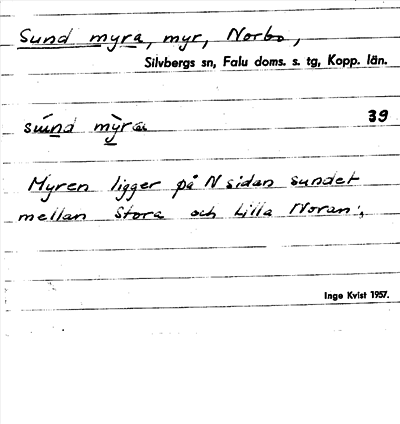 Sund myra, myr, Norbo,
Silvbergs sn, Falu doms. s. tg, Kopp. län.
39
Myren ligger på N sidan sundet
mellan Stora och Lilla Noran.
Inge Kvist 1957.